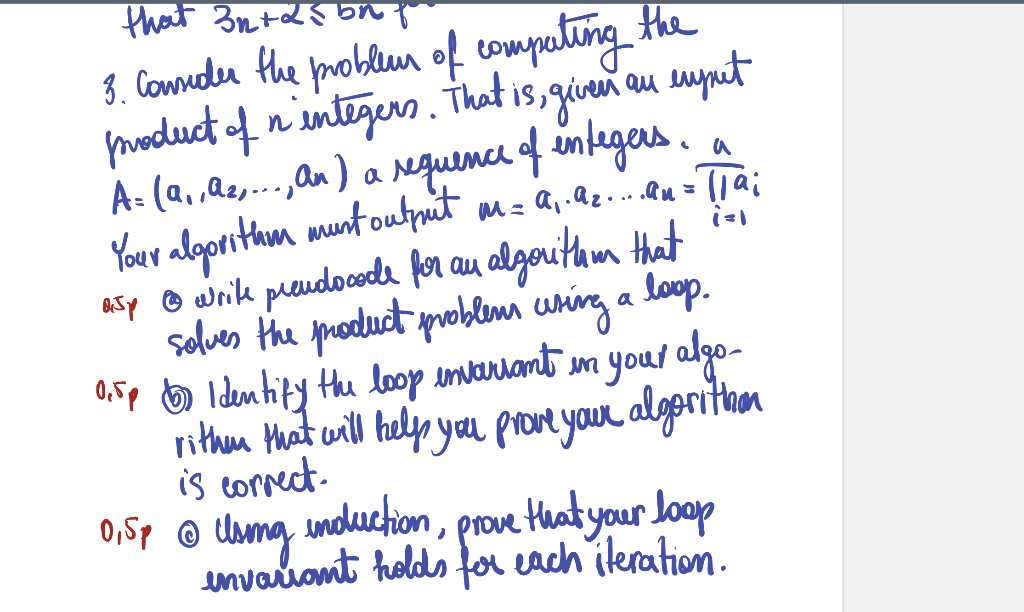 that 3n+2 ≤ 5n for
3. Consider the problem of computing the
product of n integers. That is, given an input
A = (a₁, a₂, ..., an) a sequence of integers.
Your algorithm must output m = a₁ · a₂ · ... · an = ∏ ai
n
i=1
0,5p ⓐ write pseudocode for an algorithm that
solves the product problem using a loop.
0,5p ⓑ Identify the loop invariant in your algo-
rithm that will help you prove your algorithm
is correct.
0,5p ⓒ Using induction, prove that your loop
invariant holds for each iteration.